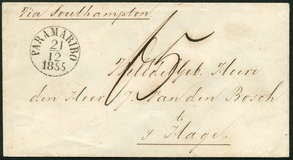 Via Southampton
PARAMARIBO
21
12
1855
15
Heere
den Heer J. van den Bosch
te
s' Hage.